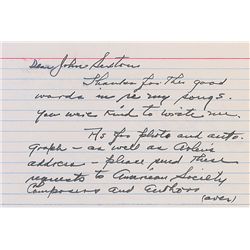 Dear John
Thanks for the good
words in re my songs.
You were kind to write me.
As for photo and auto-
graph - as well as
address - please send these
requests to American Society
Composers and Authors
(over)